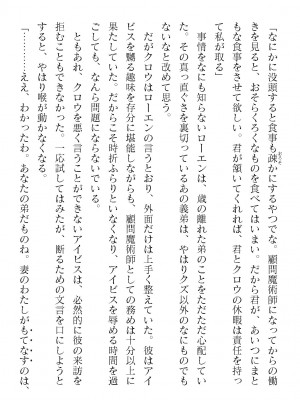 「なにかに没頭すると食事も疎かにするやつでな。顧問魔術師になってからの働
きを見ると、おそらくろくなものを食べてはいまい。だから君が、あいつにまと
もな食事をさせて欲しい。君が頷いてくれれば、君とクロウの休暇は責任を持っ
て私が取る」
事情をなにも知らないローエンは、歳の離れた弟のことをただただ心配してい
る。その真っ直ぐさを裏切っているあの義弟は、やはりクズ以外のなにものでも
ないなと改めて思う。
だがクロウはローエンの言うとおり、外面だけは上手く整えていた。彼はアイ
ビスを嬲る趣味を存分に堪能しながらも、顧問魔術師としての務めは十分以上に
果たしていた。だからこそ時折ふらりといなくなり、アイビスを辱める時間を過
ごしても、なんら問題にならないでいる。
ともあれ、クロウを悪く言うことができないアイビスは、必然的に彼の来訪を
拒むこともできなかった。一応試してはみたが、断るための文言を口にしようと
すると、やはり喉が動かなくなる。
「……ええ、わかったわ。あなたの弟だものね。妻のわたしがもてなすのは、